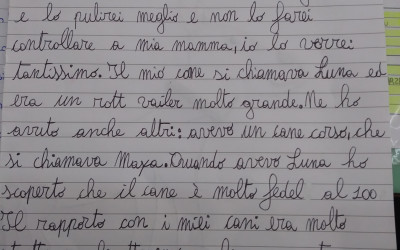 e lo pulirei meglio e non lo farei
controllare a mia mamma, io lo vorrei
tantissimo. Il mio cane si chiamava Luna ed
era un rott vailer molto grande. Ne ho
avuto anche altri: avevo un cane corso, che
si chiamava Maya. Quando avevo Luna ho
scoperto che il cane è molto fedel al 100
Il rapporto con i miei cani era molto